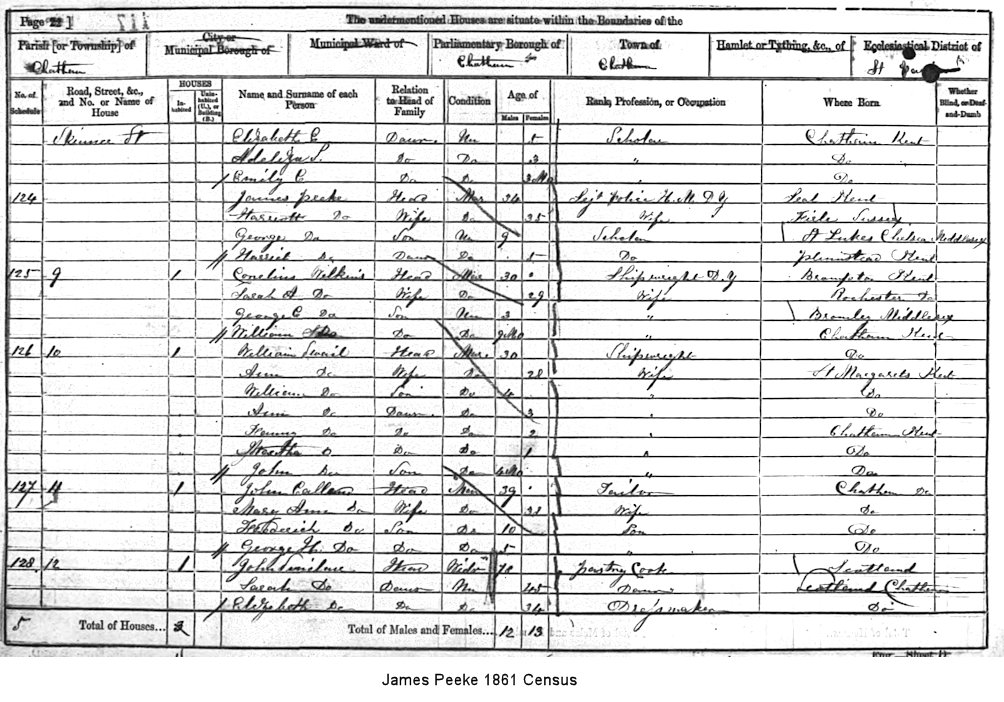 Page 22 1 117 The undermentioned Houses are situate within the Boundaries of the
Parish [or Township] of City or Municipal Borough of Municipal Ward of Parliamentary Borough of Town of Hamlet or Tything, &c., of Ecclesiastical District of
Chatham Chatham Chatham St
No. of Schedule Road, Street, &c., and No. or Name of House HOUSES Inhabited Uninhabited (U.), or Building (B.) Name and Surname of each Person Relation to Head of Family Condition Age of Males Females Rank, Profession, or Occupation Where Born Whether Blind, or Deaf-and-Dumb
St Elizabeth C Daur Un 5 Scholar Chatham Kent
S. Do Do 3 " Do
Emily C Do Do 3 Mo " Do
124 James Peeke Head Mar 34 Sejt Police H. M. D Y Kent
Do Wife Do 35 Wife Sussex
George Do Son Un 9 Scholar St Lukes Chelsea Middlesex
Harriet Do Daur Do 5 Do Plumstead Kent
125 9 1 Cornelius Wilkins Head Mar 30 Shipwright D. Y Brompton Kent
Sarah A Do Wife Do 29 Wife Rochester Do
George C Do Son Un 3 " Bromley Middlesex
William Do Do 9 Mo " Chatham Kent
126 10 1 William Head Mar 30 Shipwright Do
Ann Do Wife Do 28 Wife St Margarets Kent
William Do Son Do 4 " Do
Ann Do Daur Do 3 " Do
Do Do Do 2 " Chatham Kent
Martha Do Do Do 1 " Do
John Do Son Do Mo " Do
127 11 1 John Head Mar 39 Tailor Chatham Do
Mary Ann Do Wife Do 38 Wife Do
Frederick Do Son Do 10 Son Do
George H. Do Do Do 5 " Do
128 12 1 John Head Widr 70 Pastry Cook Scotland
Sarah Do Daur Un 45 Daur Scotland Chatham
Elizabeth Do Do Do 34 Dressmaker Do
5 Total of Houses... 3 Total of Males and Females... 12 13
James Peeke 1861 Census